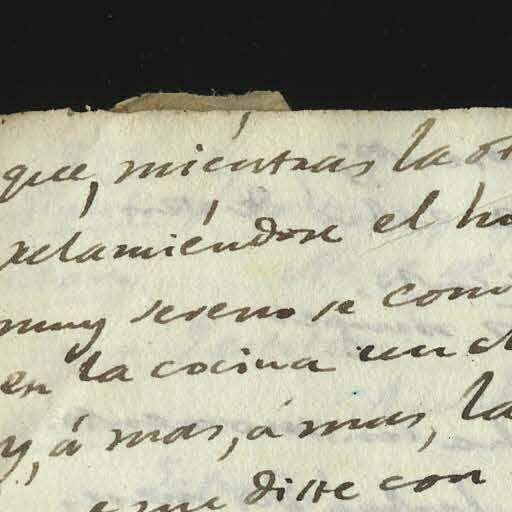 que, miéntras la
relamiéndose el
muy sereno se
en la cocina un
y, á mas, á mas, la
diste con